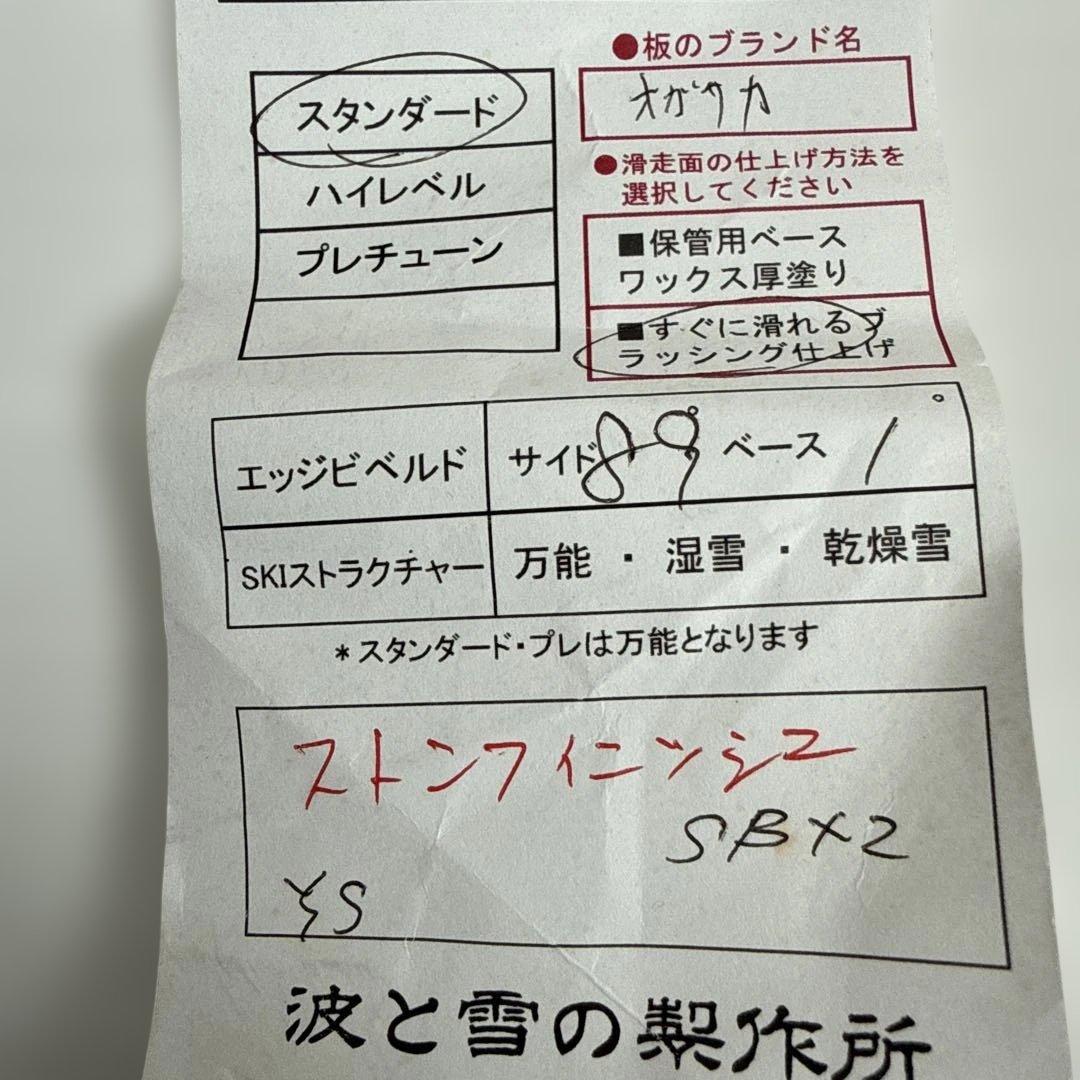 スタンダード
ハイレベル
プレチューン
●板のブランド名
オガサカ
●滑走面の仕上げ方法を
選択してください
■保管用ベース
ワックス厚塗り
■すぐに滑れるブ
ラッシング仕上げ
エッジビベルド サイド 89° ベース 1°
SKIストラクチャー 万能 ・ 湿雪 ・ 乾燥雪
*スタンダード・プレは万能となります
ストンフィニッシュ
SB×2
YS
波と雪の製作所